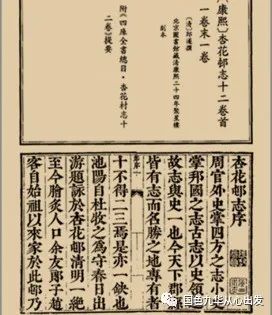 〔康熙〕杏花邨志十二卷首
一卷末一卷
〔清〕郎遂撰
北京圖書館藏清康熙二十四年聚星樓
刻本
附《四庫全書總目·杏花村志十
二卷》提要
杏花邨志序
周官外史掌四方之志小史
掌邦國之志古志以史領之
故志與史一也今天下郡縣
皆有志而名勝之地專有者
十不得二三焉是亦一缺也
池陽自杜牧之為守春日出
游題詠於杏花邨清明一絶
至今膾炙人口余友郎子趙
客自始祖以來家於此邨乃
国色九华从心出发